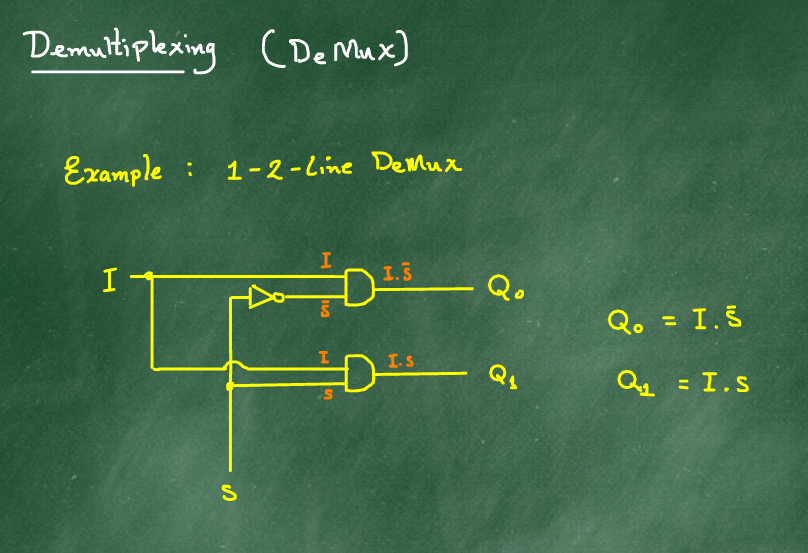 Demultiplexing (DeMux)
Example : 1-2-Line DeMux
I
I
S̄
I.S̄
Q₀
I
S
I.S
Q₁
S
Q₀ = I.S̄
Q₁ = I.S